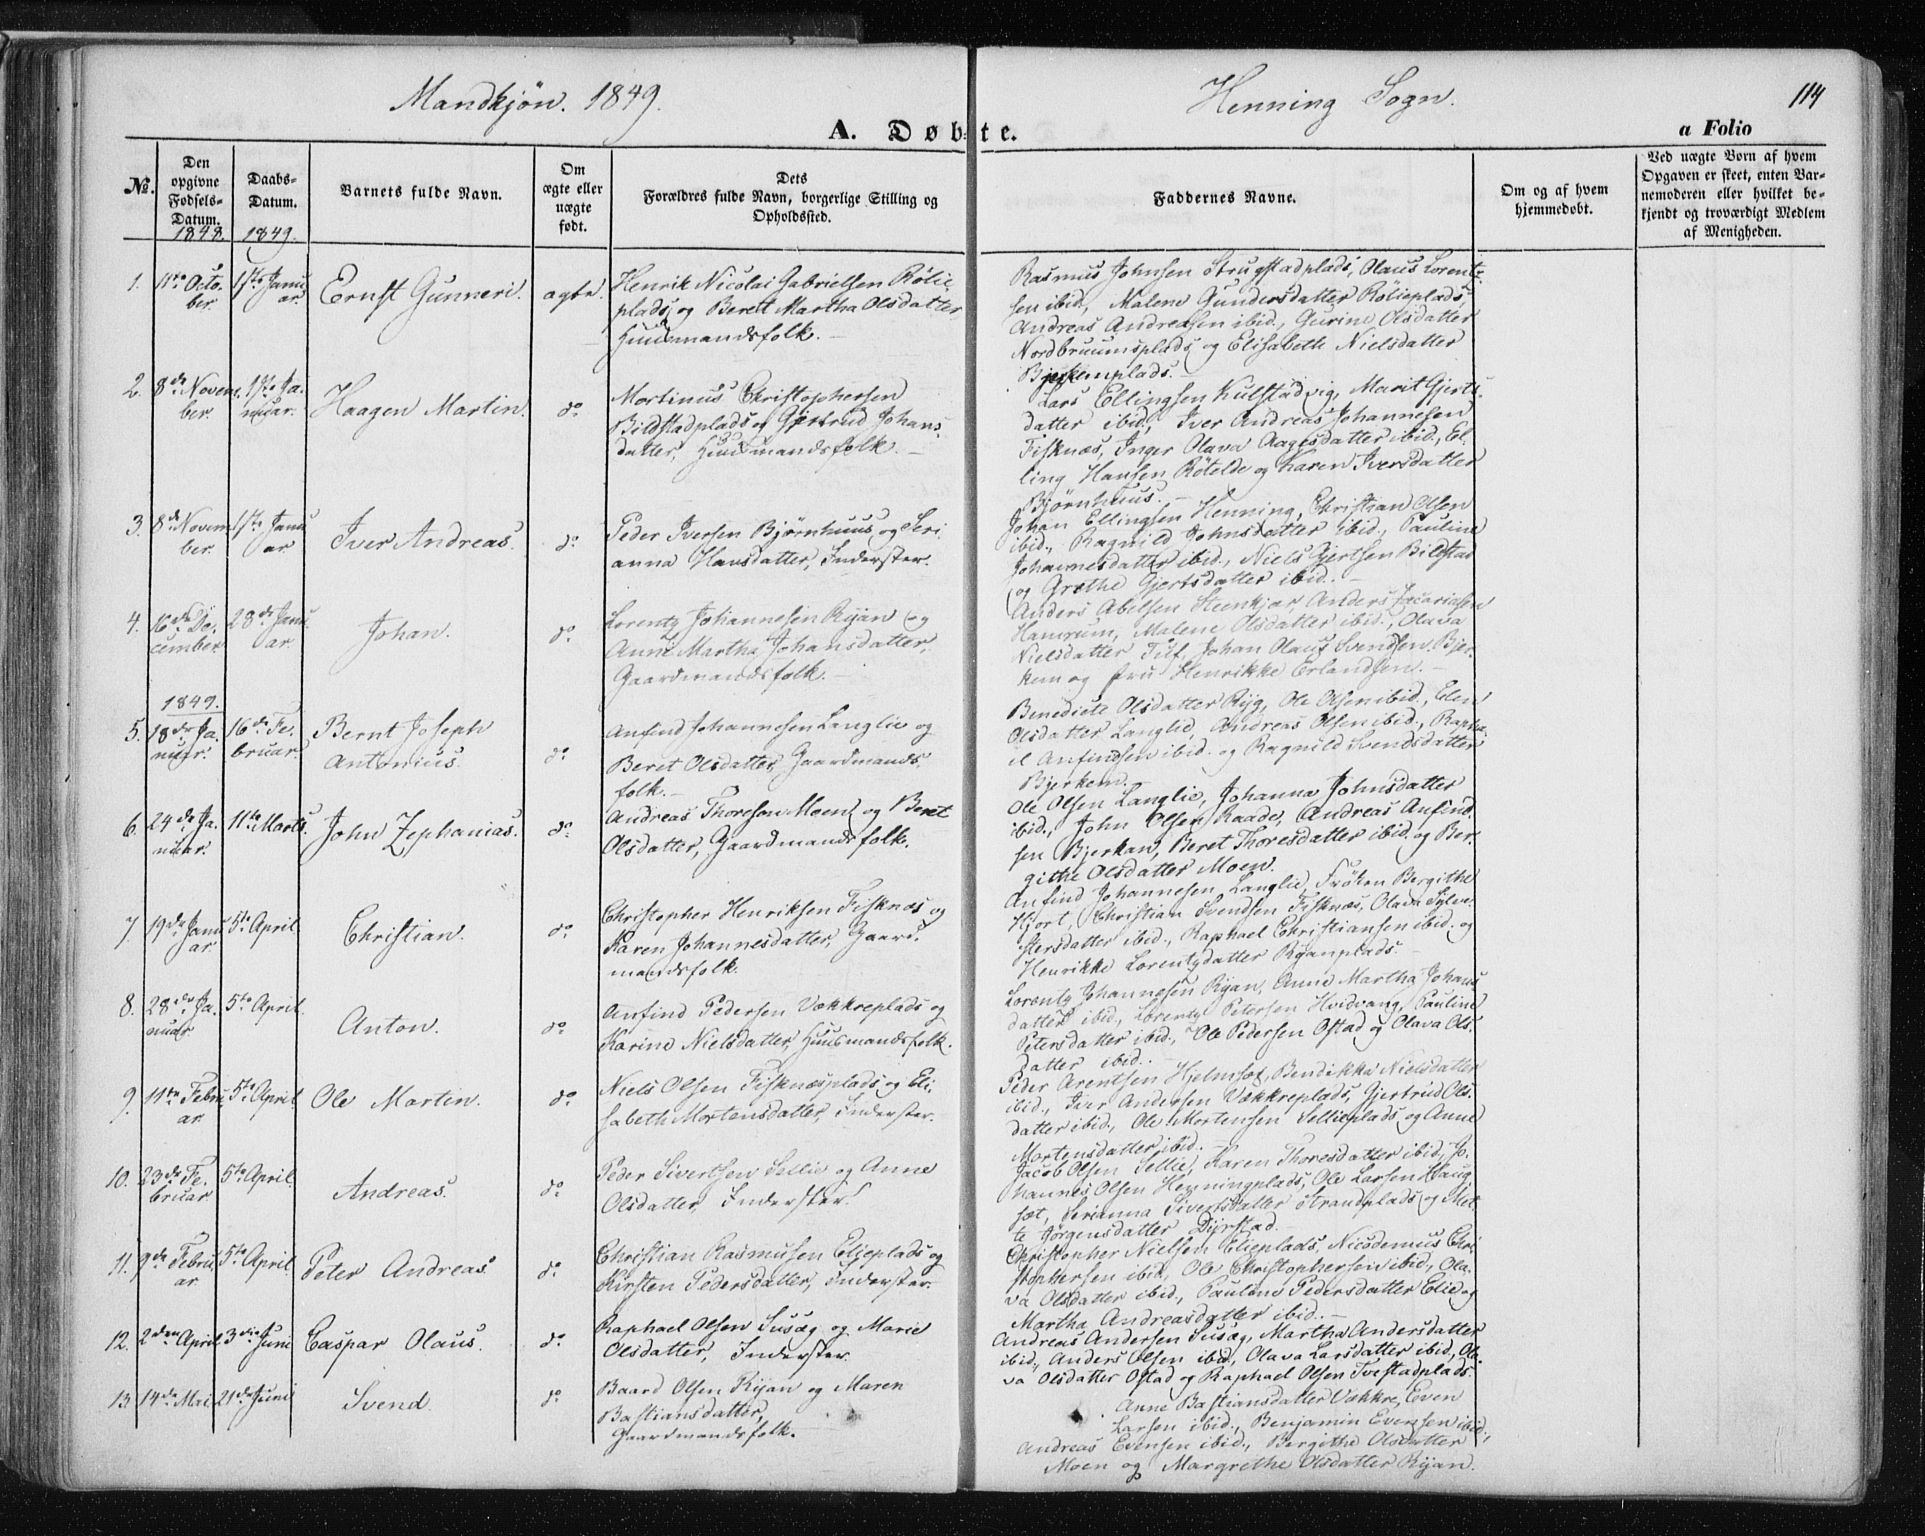 Mandkjøn. 1849.
Henning Sogn.
114
A. Døbte.
a Folio
No.
Den opgivne Fødsels-Datum.
1848.
Daabs-Datum.
1849.
Barnets fulde Navn.
Om ægte eller uægte født.
Dets Forældres fulde Navn, borgerlige Stilling og Opholdssted.
Faddernes Navne.
Om og af hvem hjemmedøbt.
Ved uægte Børn af hvem Opgaven er skeet, enten Barnemoderen eller hvilket bekjendt og troværdigt Medlem af Menigheden.
1. 11te Octo-
ber.
1ste Janu-
ar.
Ernst Gunneri.
ægte.
Henrik Nicolai Gabrielsen Rølie-
plads og Berett Martha Olsdatter
Huusmandsfolk.
Rasmus Johnsen Strugstadplads, Olaus Lorent-
sen ibid., Malene Gundersdatter Rølieplads,
Andreas Andreasen ibid., Gurine Olsdatter
Nordbruumsplads og Elisabeth Nielsdatter
Bjerkemplads.
2. 8de Novem-
ber.
1ste Ja-
nuar.
Haagen Martin.
do
Martinus Christophersen
Bildstadplads og Gjertrud Johans-
datter, Huusmandsfolk.
Lars Ellingsen Kulstadvig, Marit Gjerts-
datter ibid., Iver Andreas Johannesen
Fisknæs, Inger Olava Aagesdatter ibid., El-
ling Hansen Røtelde og Karen Iversdatter
Bjørnhuus.
3. 8de Novem-
ber.
1ste Janu-
ar
Iver Andreas.
do
Peder Iversen Bjørnhuus og Seri-
anna Hansdatter, Inderster.
Johan Ellingsen Henning, Christian Olsen
ibid., Ragnild Johnsdatter ibid., Pauline
Johannesdatter ibid., Niels Gjertsen Bildstad
og Grethe Gjertsdatter ibid.
4. 16de De-
cember
28de Janu-
ar.
Johan.
do
Lorentz Johannesen Ryan og
Anne Martha Johansdatter,
Gaardmandsfolk.
Anders Abelsen Steenkjær, Anders Zacariasen
Hamrum, Malene Olsdatter ibid., Olava
Nielsdatter Tuf, Johan Olaus Svendsen Bjer-
kem og Fru Henrikke Erlandsen.
1849.
5. 18de Ja-
nuar.
16de Fe-
bruar.
Bernt Joseph
Antonius.
do
Anfind Johannesen Langlie og
Beret Olsdatter, Gaardmands-
folk.
Benedicte Olsdatter Ryg, Ole Olsen ibid., Elen
Olsdatter Langlie, Andreas Olsen ibid., Rapha-
el Anfindsen ibid. og Ragnild Svendsdatter
Bjerkem.
6. 24de Ja-
nuar.
11te Marts.
John Zephanias.
do
Andreas Thoresen Moen og Beret
Olsdatter, Gaardmandsfolk.
Ole Olsen Langlie, Johanna Johnsdatter
ibid., John Olsen Raade, Andreas Anfind-
sen Bjerkan, Beret Thoresdatter ibid. og Ber-
githe Olsdatter Moen.
7. 19de Janu-
ar.
5te April.
Christian.
do
Christopher Henriksen Fisknæs og
Karen Johannesdatter, Gaard-
mandsfolk.
Anfind Johannesen Langlie, Frøken Bergithe
Hjort, Christian Svendsen Fisknæs, Olava Sylve-
stersdatter ibid., Raphael Christiansen ibid. og
Henrikke Lorentzdatter Ryanplads.
8. 28de Ja-
nuar.
5te April.
Anton.
do
Anfind Pedersen Vækkreplads og
Karine Nielsdatter, Huusmandsfolk.
Lorentz Johannesen Ryan, Anne Martha Johans-
datter ibid., Lorentz Petersen Hvidvang, Pauline
Petersdatter ibid., Ole Pedersen Ostad og Olava Ols-
datter ibid.
9. 11te Febru-
ar.
5te April
Ole Martin.
do
Niels Olsen Fisknæsplads og Eli-
sabeth Mortensdatter, Inderster.
Peder Arentsen Hjelmset, Bendikka Nielsdatter
ibid., Iver Andersen Vækkreplads, Gjertrud Ols-
datter ibid., Ole Mortensen Sellieplads og Anne
Mortensdatter ibid.
10. 23de Fe-
bruar
5te April.
Andreas.
do
Peder Sivertsen Sellie og Anne
Olsdatter, Inderster.
Jacob Olsen Sellie, Karen Thoresdatter ibid., Jo-
hannes Olsen Henningplads, Ole Larsen Haug-
set, Serianna Sivertsdatter Strandplads og Met-
te Jørgensdatter Dyrstad.
11. 9de Febru-
ar
5te April.
Peter Andreas
do
Christian Rasmusen Elieplads og
Kirsten Pedersdatter, Inderster.
Christopher Nielsen Elieplads, Nicodemus Chri-
stophersen ibid., Ole Christophersen ibid., Ola-
va Olsdatter ibid., Pauline Pedersdatter Elie og
Martha Andreasdatter ibid.
12. 2den April
3die Juni
Caspar Olaus.
do
Raphael Olsen Susæg og Marie
Olsdatter, Inderster.
Andreas Andersen Susæg, Martha Andersdatter
ibid., Anders Olsen ibid., Olava Larsdatter ibid., Ola-
va Olsdatter Ostad og Raphael Olsen Tvestadplads.
13. 14de Mai
21de Juni
Svend.
do
Baard Olsen Ryan og Maren
Bastiansdatter,
Gaardmandsfolk.
Anne Bastiansdatter Vækkre, Even
Larsen ibid., Benjamin Evensen ibid.,
Andreas Evensen ibid., Bergithe Olsdatter
Moen og Margrethe Olsdatter Ryan.